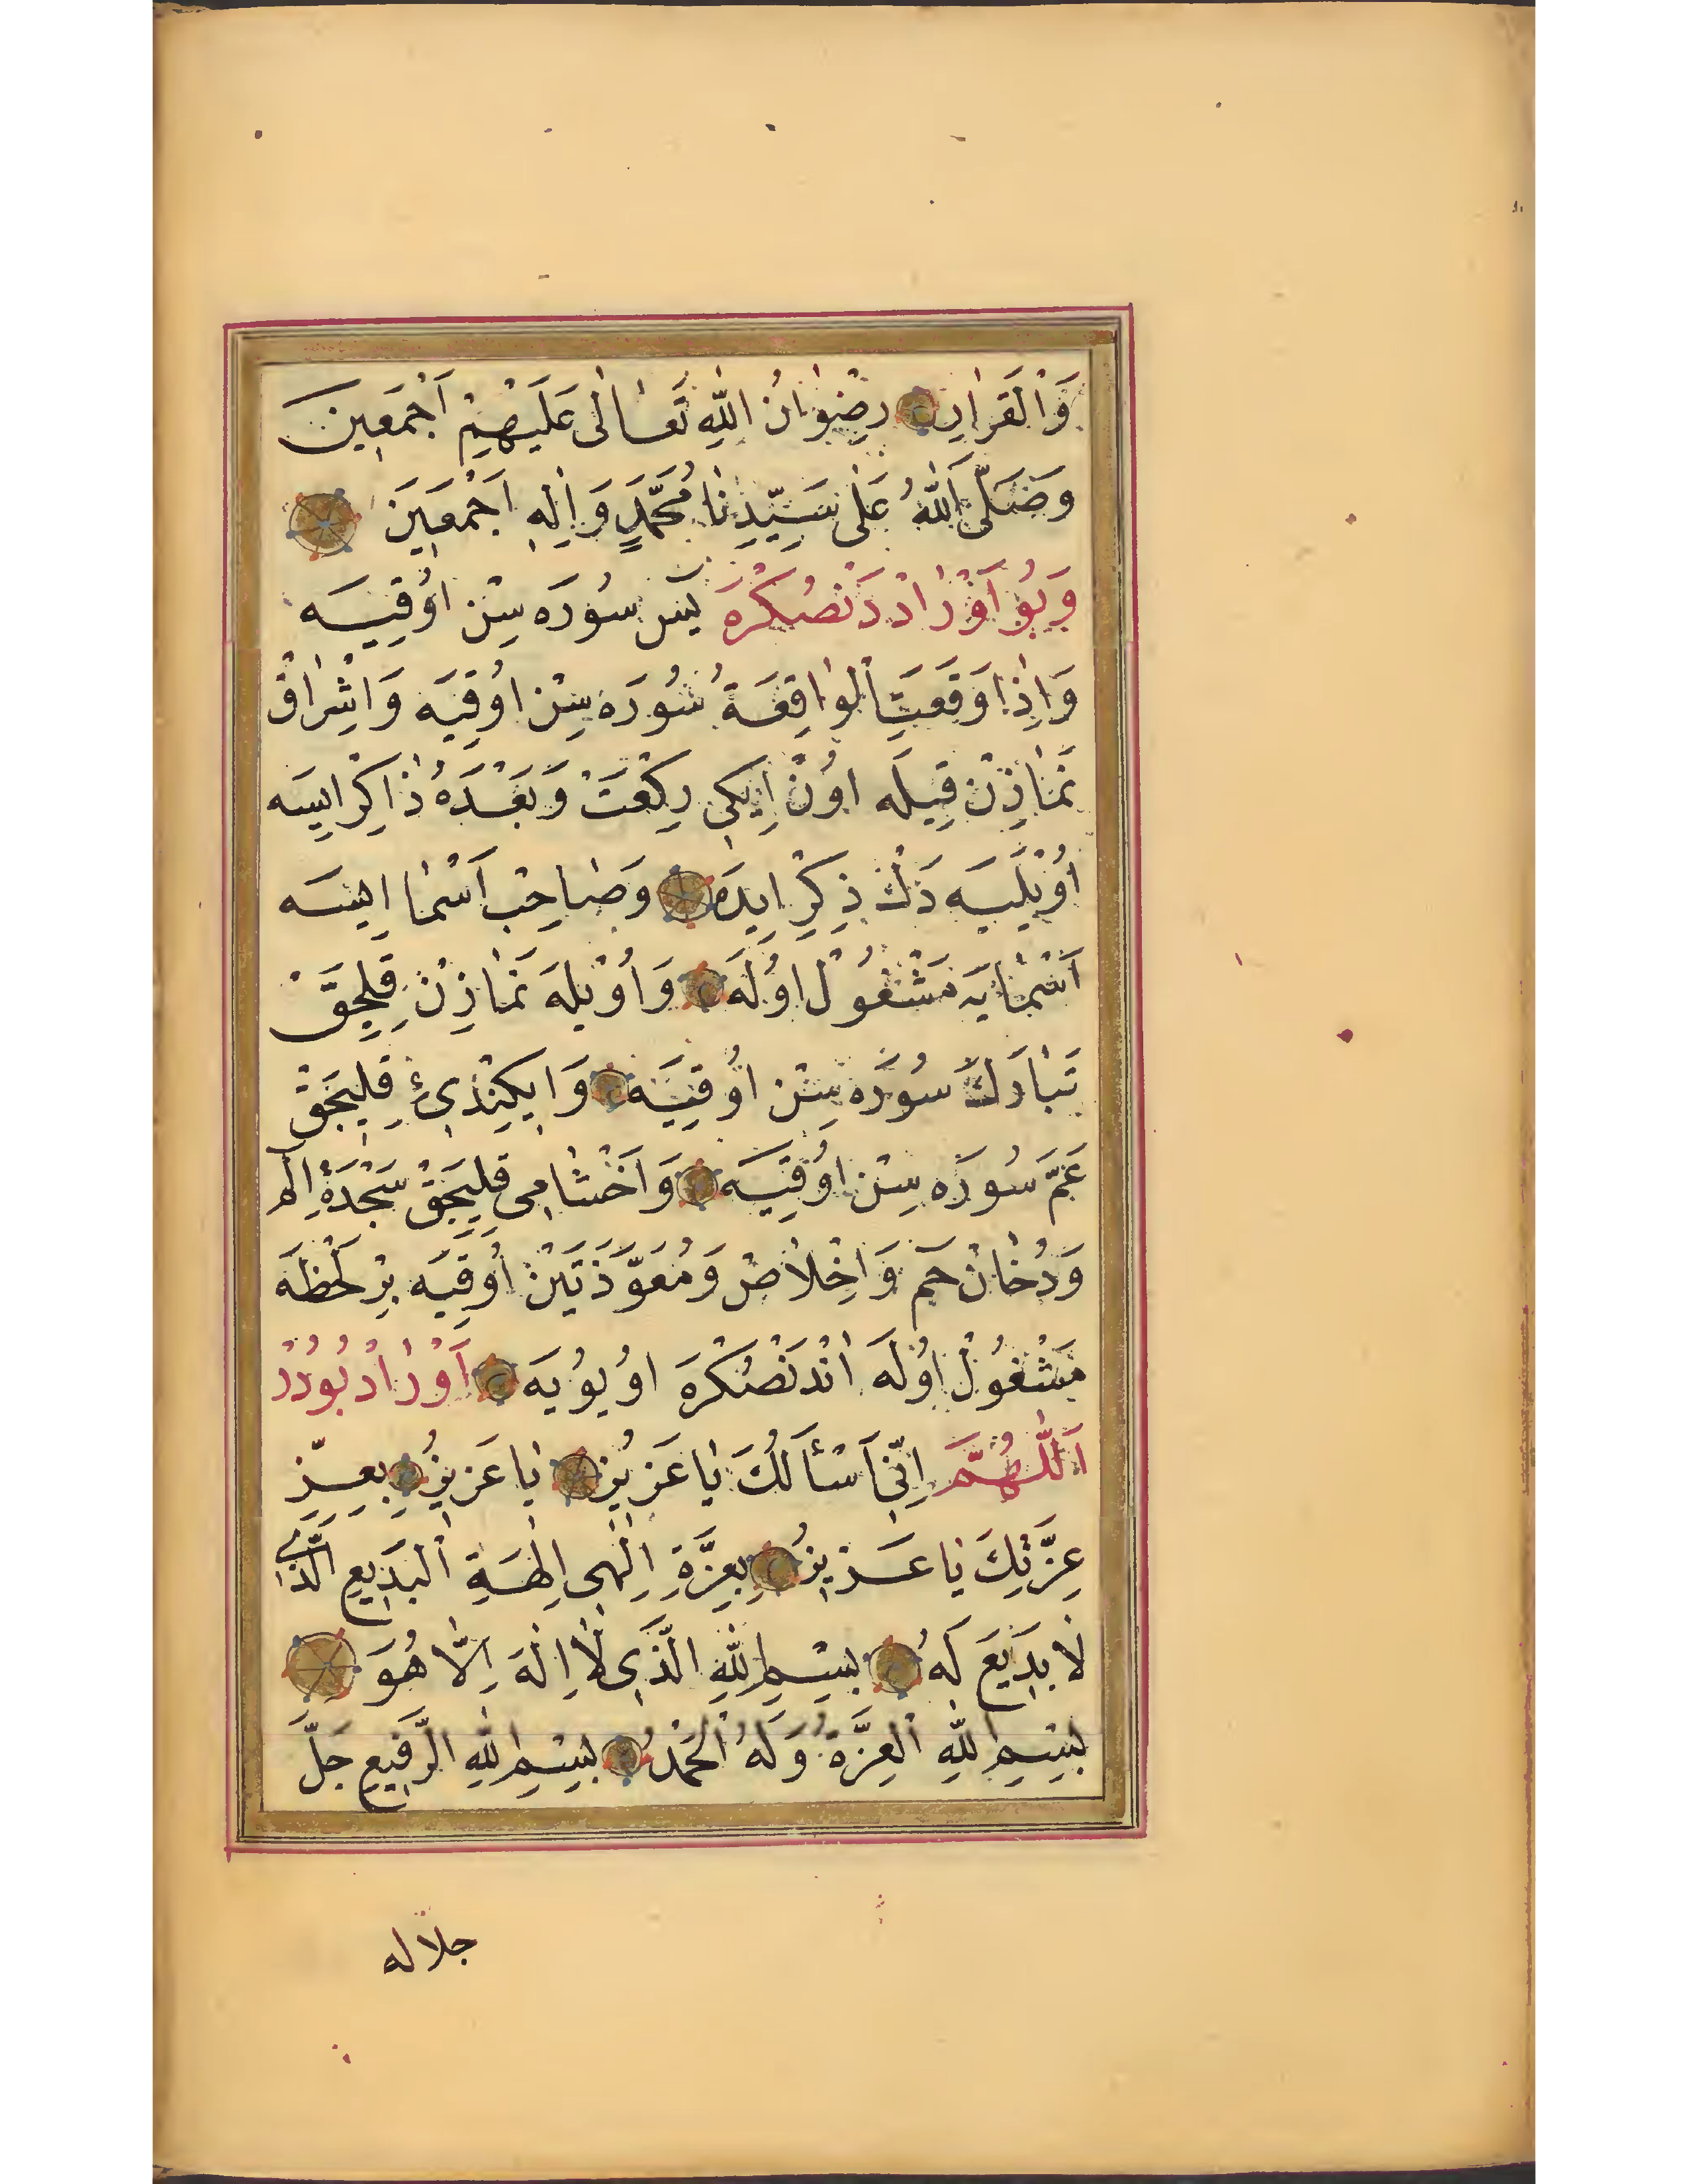 وَالْقَرَارِ رِضْوَانُ اللّٰهِ تَعَالٰى عَلَيْهِمْ اَجْمَعِينَ
وَصَلَّى اللّٰهُ عَلٰى سَيِّدِنَا مُحَمَّدٍ وَاٰلِهِ اَجْمَعِينَ
وَبُو اَوْرَادْدَنْصُكْرَه يٰس سُورَه سِنْ اوُقِيَه
وَاِذَا وَقَعَتِ الْوَاقِعَةُ سُورَه سِنْ اوُقِيَه وَاِشْرَاقْ
نَمَازِنْ قِيلَه اوُنْ اِيكِى رِكْعَتْ وَبَعْدَهُ ذَاكِرْ ايسَه
اُوْيلَيَه دَكْ ذِكِرْ ايدَه وَصَاحِبْ اَسْمَا ايسَه
اَسْمَايَه مَشْغُولْ اوُلَه وَاُوْيلَه نَمَازِنْ قِلِيجَقْ
تَبَارَكَ سُورَه سِنْ اوُقِيَه وَايكِنْدِىءِ قِلِيجَقْ
عَمَّ سُورَه سِنْ اوُقِيَه وَاَخْشَامِى قِلِيجَقْ سَجْدَهْ اِلٓم
وَدُخَانْ حٰم وَاِخْلَاصْ وَمُعَوَّذَتَيْنْ اوُقِيَه بِرْ لَحْظَه
مَشْغُولْ اوُلَه اَنْدَنْصُكْرَه اوُيُويَه اَوْرَادْ بُودُرْ
اَللّٰهُمَّ اِنِّى اَسْئَلُكَ يَا عَزِيزُ يَا عَزِيزُ بِعِزِّ
عِزَّتِكَ يَا عَزِيزُ بِعِزَّةِ اِلٰهِى اِلٰهِيَةِ الْبَدِيعِ الَّذِى
لَا بَدِيعَ لَهُ بِسْمِ اللّٰهِ الَّذِى لَا اِلٰهَ اِلَّا هُوَ
بِسْمِ اللّٰهِ الْعِزَّةُ وَلَهُ الْحَمْدُ بِسْمِ اللّٰهِ الرَّفِيعِ جَلَّ
جلاله